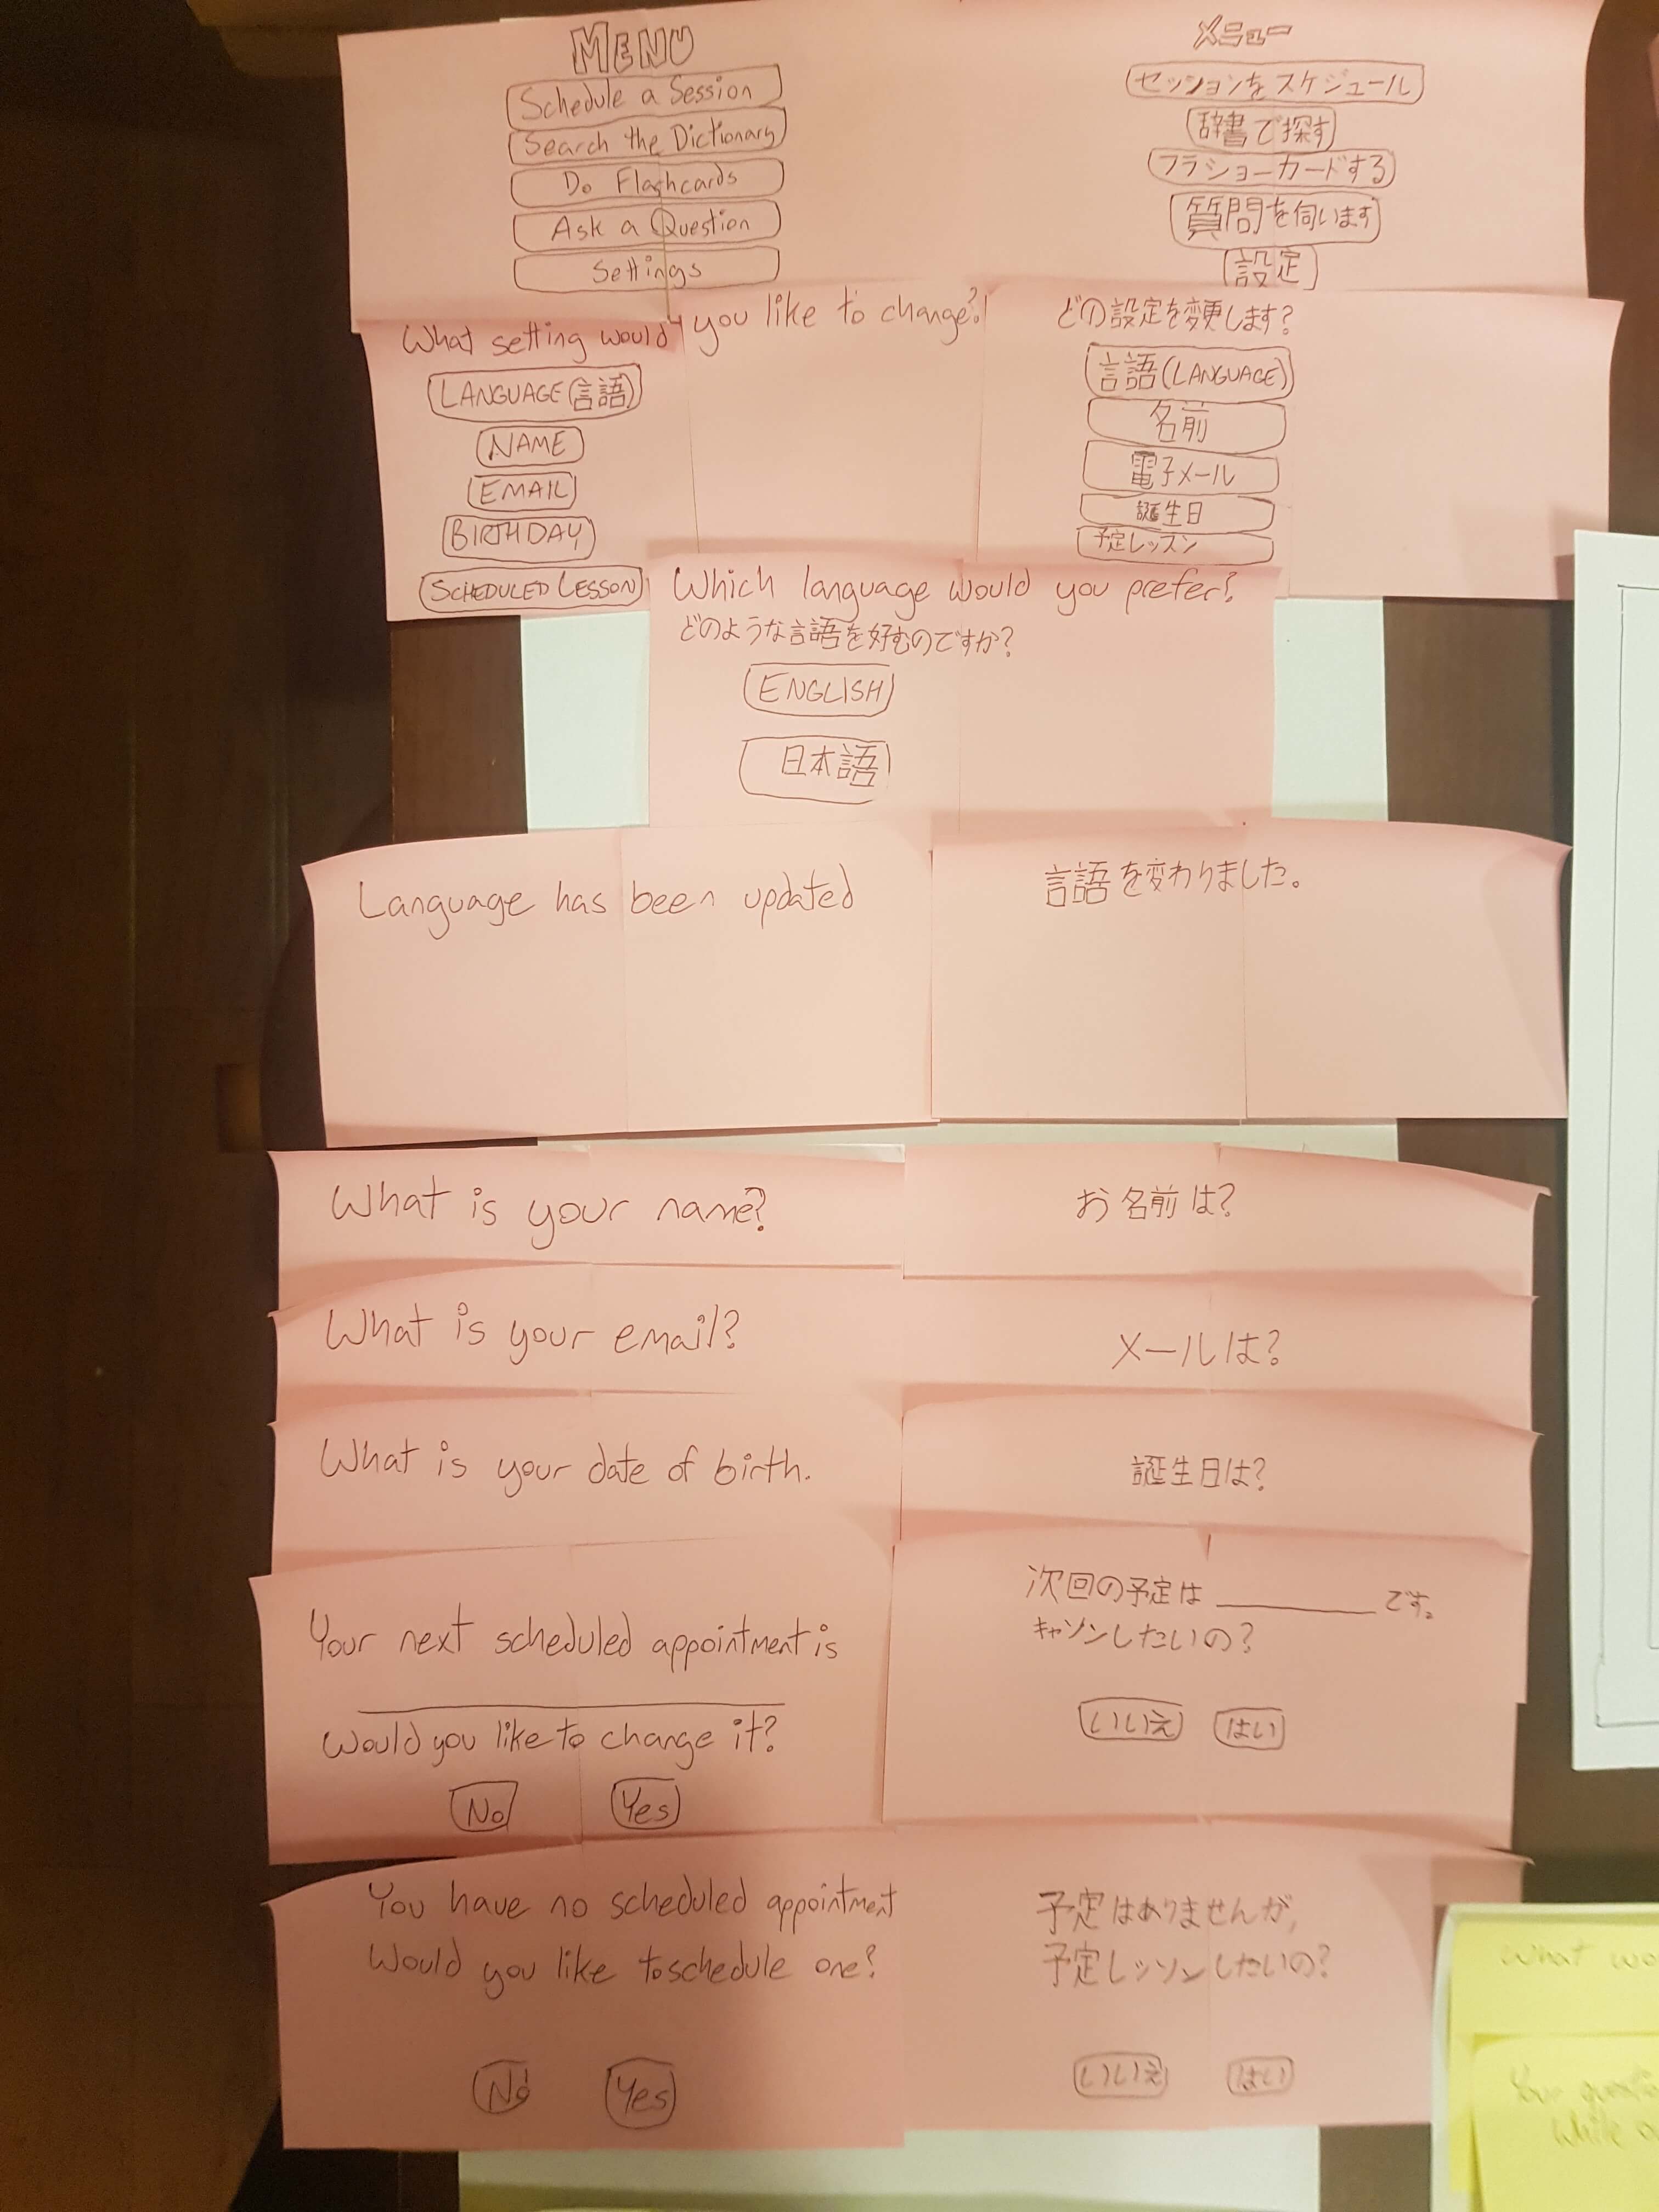 MENU
Schedule a Session
Search the Dictionary
Do Flashcards
Ask a Question
Settings
メニュー
セッションをスケジュール
辞書で探す
フラショーカードする
質問を伺います
設定
What setting would you like to change?
LANGUAGE (言語)
NAME
EMAIL
BIRTHDAY
SCHEDULED LESSON
どの設定を変更します?
言語 (LANGUAGE)
名前
電子メール
誕生日
予定レッスン
Which language would you prefer?
どのような言語を好むのですか?
ENGLISH
日本語
Language has been updated
言語を変わりました。
What is your name?
お名前は?
What is your email?
メールは?
What is your date of birth.
誕生日は?
Your next scheduled appointment is
Would you like to change it?
No Yes
次回の予定は です。
キャソンしたいの?
いいえ はい
You have no scheduled appointment
Would you like to schedule one?
No Yes
予定はありませんが,
予定レッソンしたいの?
いいえ はい
What wo
Your questio
While o